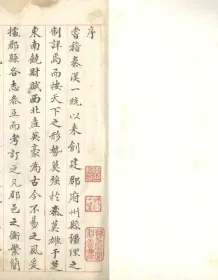 序
嘗稽秦漢一統以來創建郡府州縣疆理之
制詳焉而按天下之形勢莫強於秦莫雄于楚
東南饒財賦西北産英豪為古今不易之風爰
據郡縣各志叅互而考訂之凡郡邑之衝繁簡